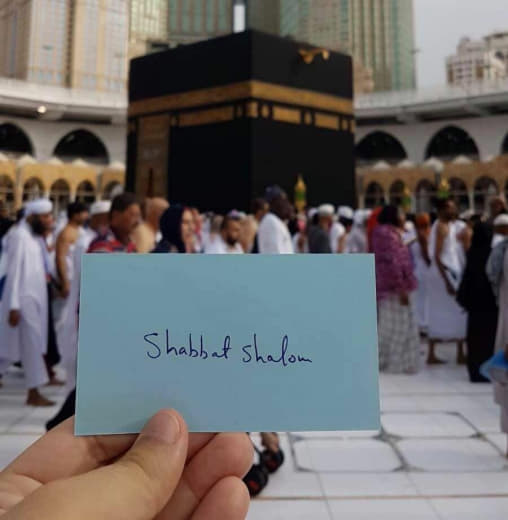 Shabbat Shalom